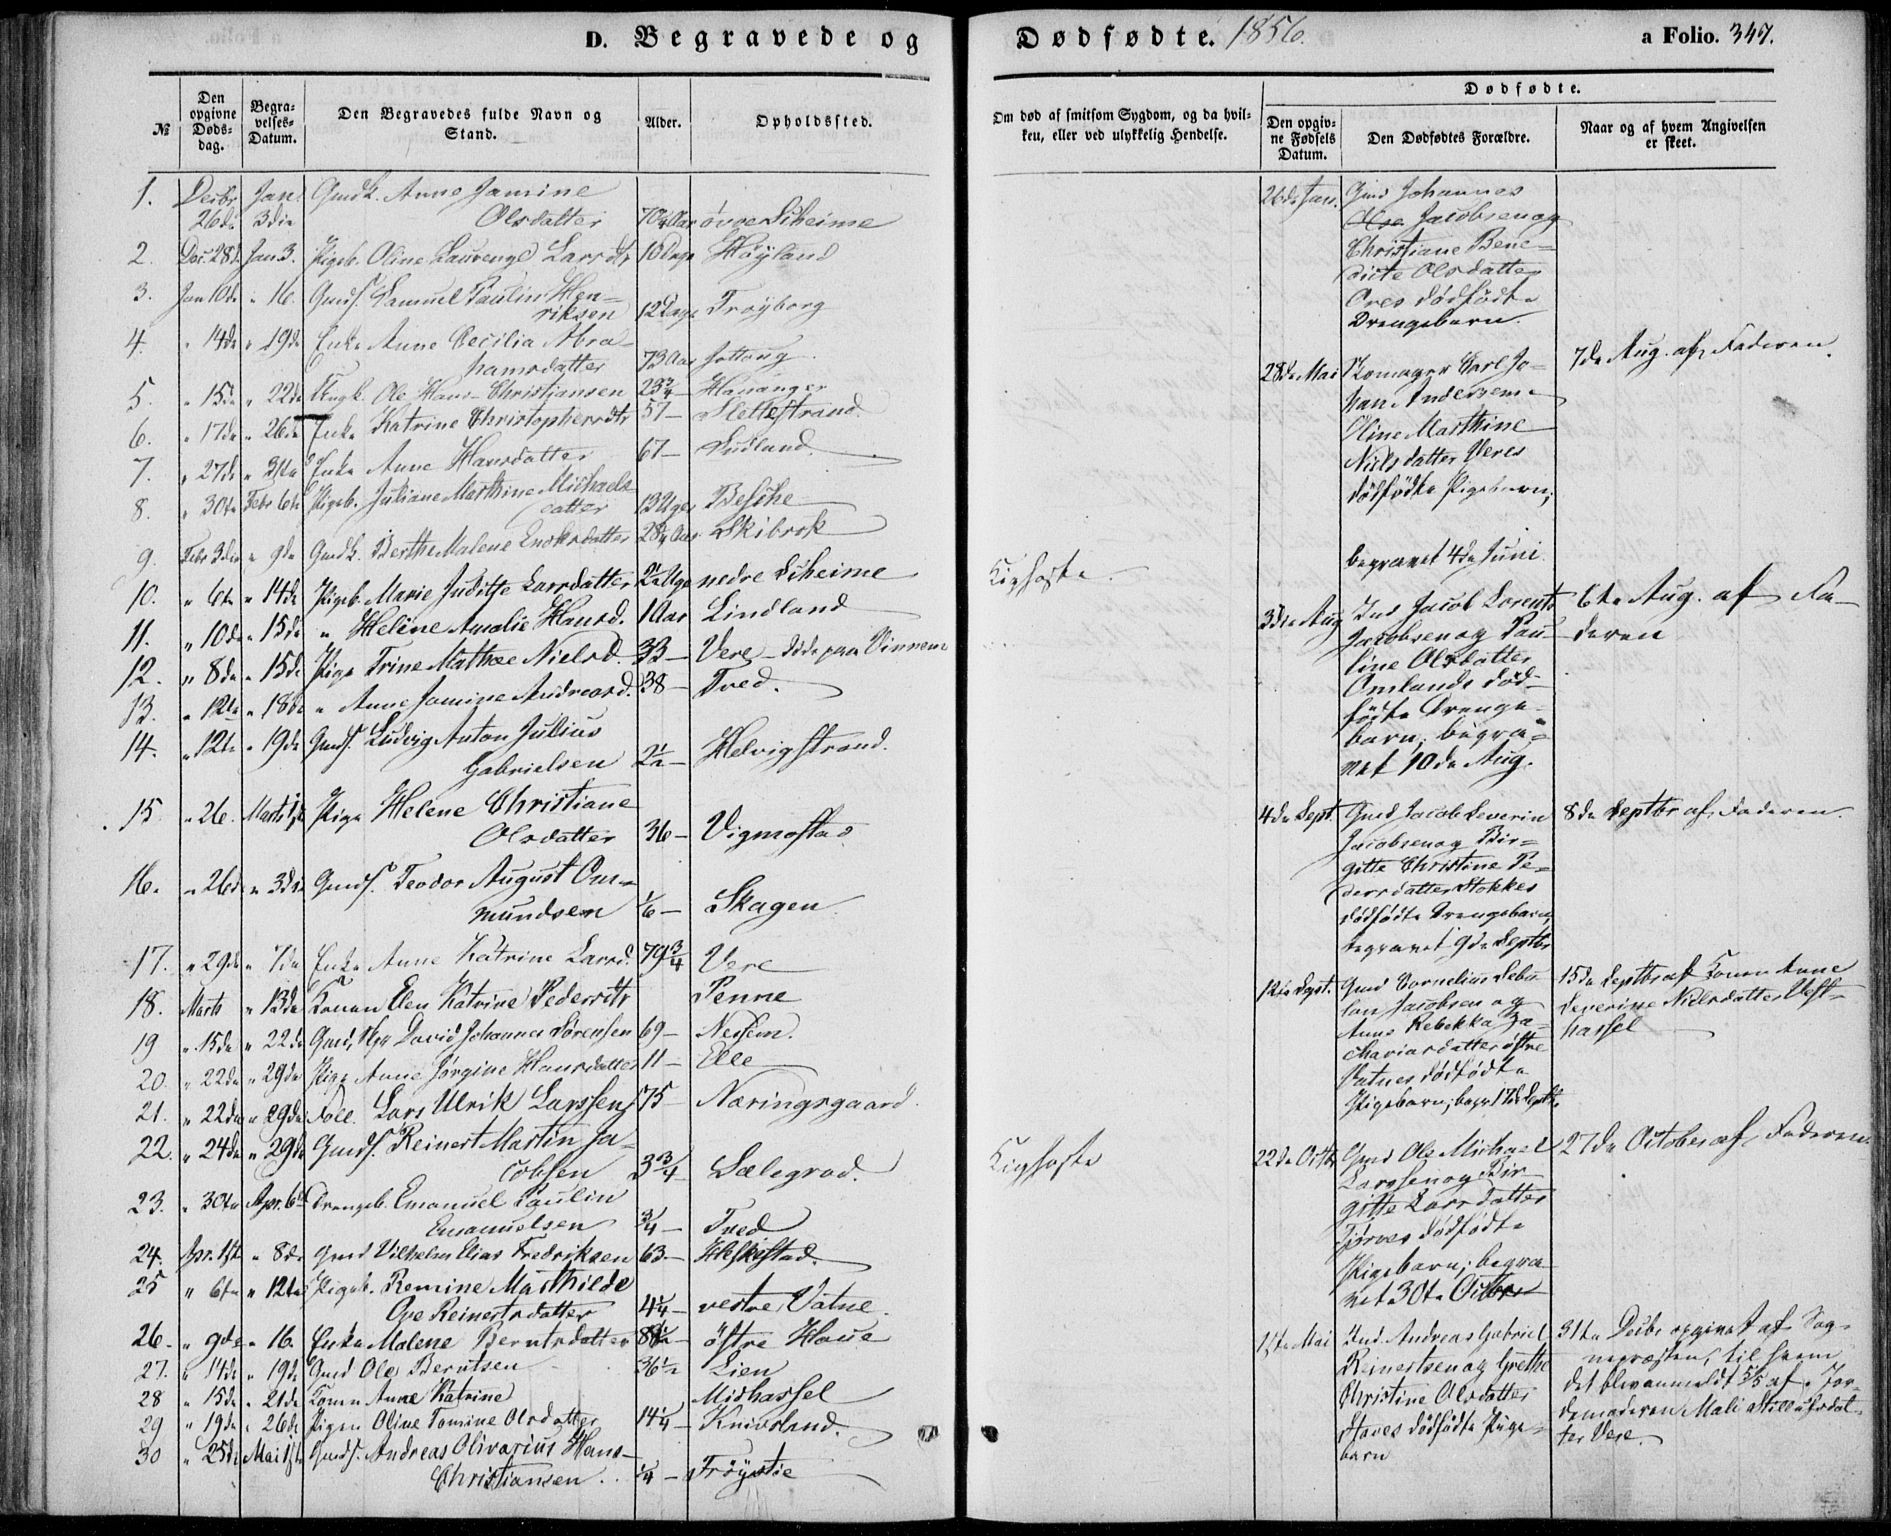 D. Begravede og Dødfødte. 1856.
a Folio. 347.
№
Den opgivne Døds-dag.
Begra-velses-Datum.
Den Begravedes fulde Navn og Stand.
Alder.
Opholdssted.
Om død af smitsom Sygdom, og da hvil-
ken, eller ved ulykkelig Hendelse.
Dødfødte.
Den opgiv-ne Fødsels Datum.
Den Dødfødtes Forældre.
Naar og af hvem Angivelsen er skeet.
1. Decbr 26de Jan 3die Gmdk. Anne Jamine
Olsdatter 70 Aar øvre Skeime
2. Dec. 28d Jan 3. Pigeb. Oline Laurenze Larsdtr 10 Dage Høyland
3. Jan 10de " 16. Gmds. Samuel Paulin Hen-
riksen 12 Dage Frøyborg
4. " 14de " 19de Enke Anne Cecilia Abra-
hamsdatter 73 Aar Jottaug
5. " 15de " 22de Ungk. Ole Hans Christiansen 23 3/4 – Hananger
6. " 17de " 26de Enke Katrine Christophersdtr 57 – Slettestrand.
7. " 27de " 31te Enke Anne Hansdatter 67 – Sudland.
8. " 30te Febr 6te Pigeb. Juliane Marthine Michaels-
datter 13 Uger Besche
9. Febr 3die " 9de Gmdk. Berthe Malene Enoksdatter 28 1/4 Aar Skibrok
10. " 6te " 14de Pigeb. Marie Juditte Larsdatter 2 1/2 Uge nedre Skeime Kighoste.
11. " 10de " 15de " Helene Amalie Hansd. 1 Aar Lindland
12. " 8de " 15de Pige Trine Mathea Nielsd. 33 – Vere – døde paa Vinnem
13. " 12te " 18de " Anne Jamine Andreasd. 38 – Tved.
14. " 12te " 19de Gmds. Ludvig Anton Julius
Gabrielsen 2 1/2 – Helvigstrand.
15 " 26. Marts 1ste Pige Helene Christiane
Olsdatter 36 – Vigmostad
16. " 26de " 3die Gmds. Teodor August Om-
mundsen 1/6 – Skagen
17. " 29de " 7de Enke Anne Katrine Larsd. 79 3/4 Vere
18. Marts " 13de Konen Elen Katrine Pedersdtr Penne
19 " 15de " 22de Gmd, Skpr David Johannes Sørensen 69 – Nesheim.
20. " 22de " 29de Pige Anne Jørgine Hansdatter 11 – Elle
21. " 22de " 29de Føll. Lars Ulrik Larssen 75 – Næringsgaard
22. " 24de " 29de Gmds. Reinert Martin Ja-
cobsen 3 3/4 – Lælegrad. Kighoste
23. " 30te Apr. 6te Drengeb. Emanuel Paulin
Emanuelsen 3/4 – Tved
24. Apr. 1ste " 8de Gmd Vilhelm Elias Fredriksen 63 – Helkestad.
25 " 6te " 12te Pigeb. Romine Mathilde
Ove Reinertsdatter 4 1/4 – vestre Vatne
26. " 9de " 16. Enke Malene Berntsdatter 88 1/2 – østre Haue
27. " 14de " 19de Gmd Ole Berntsen 36 1/2 Lien
28 " 15de " 21de Konen Anne Katrine Midhassel
29 " 19de " 26de Pigen Oline Tomine Olsdatter 14 1/4 – Knivsland.
30 " 25de Mai 1ste Gmds. Andreas Olivarius Hans-
Christiansen 1/4 – Frøystøe
26de Jan. Gmd Johannes
Jacobsen og
Christiane Bene-
dicte Olsdatter
Ores dødfødte
Drengebarn.
28de Mai Skomager Carl Jo-
han Andersen
Oline Marthine
Nielsdatter Veres
dødfødte Pigebarn;
begravet 4de Juni
7de Aug. af Faderen.
3die Aug Ind Jacob Lorents
Jacobsen og Pau-
line Olsdatter
Omlands død-
fødte Drenge-
barn, begra-
vet 10de Aug.
6te Aug. af Fa-
deren
4de Sept. Gmd Jacob Severin
Jacobsen og Bir-
gitte Christine Pe-
dersdatter Stokkes
dødfødte Drengebarn
begravet 9de Septbr
8de Septbr af Faderen.
12te Sept. Gmd Cornelius Sebu-
lon Jacobsen og
Anne Rebekka Za-
chariasdatter østre
Vatnes dødfødte
Pigebarn; begr 17de Septb.
15de Septbr af Konen Anne
Severine Nielsdatter Vest-
hassel
22de Octbr Gmd Ole Michael
Larssen og Bir
gitte Larsdatter
Tjørves dødfødte
Pigebarn; begra-
vet 30te Octbr
27de October af Faderen.
1ste Mai Ind. Andreas Gabriel
Reinertsen og Grethe
Christine Olsdatter
Haves dødfødte Pige-
barn
31te Decbr opgivet af Sog-
nepræsten, til hvem
det blev anmeldt 5/5 af Jor-
demoderen Mali Atlaksdat-
ter Vere.